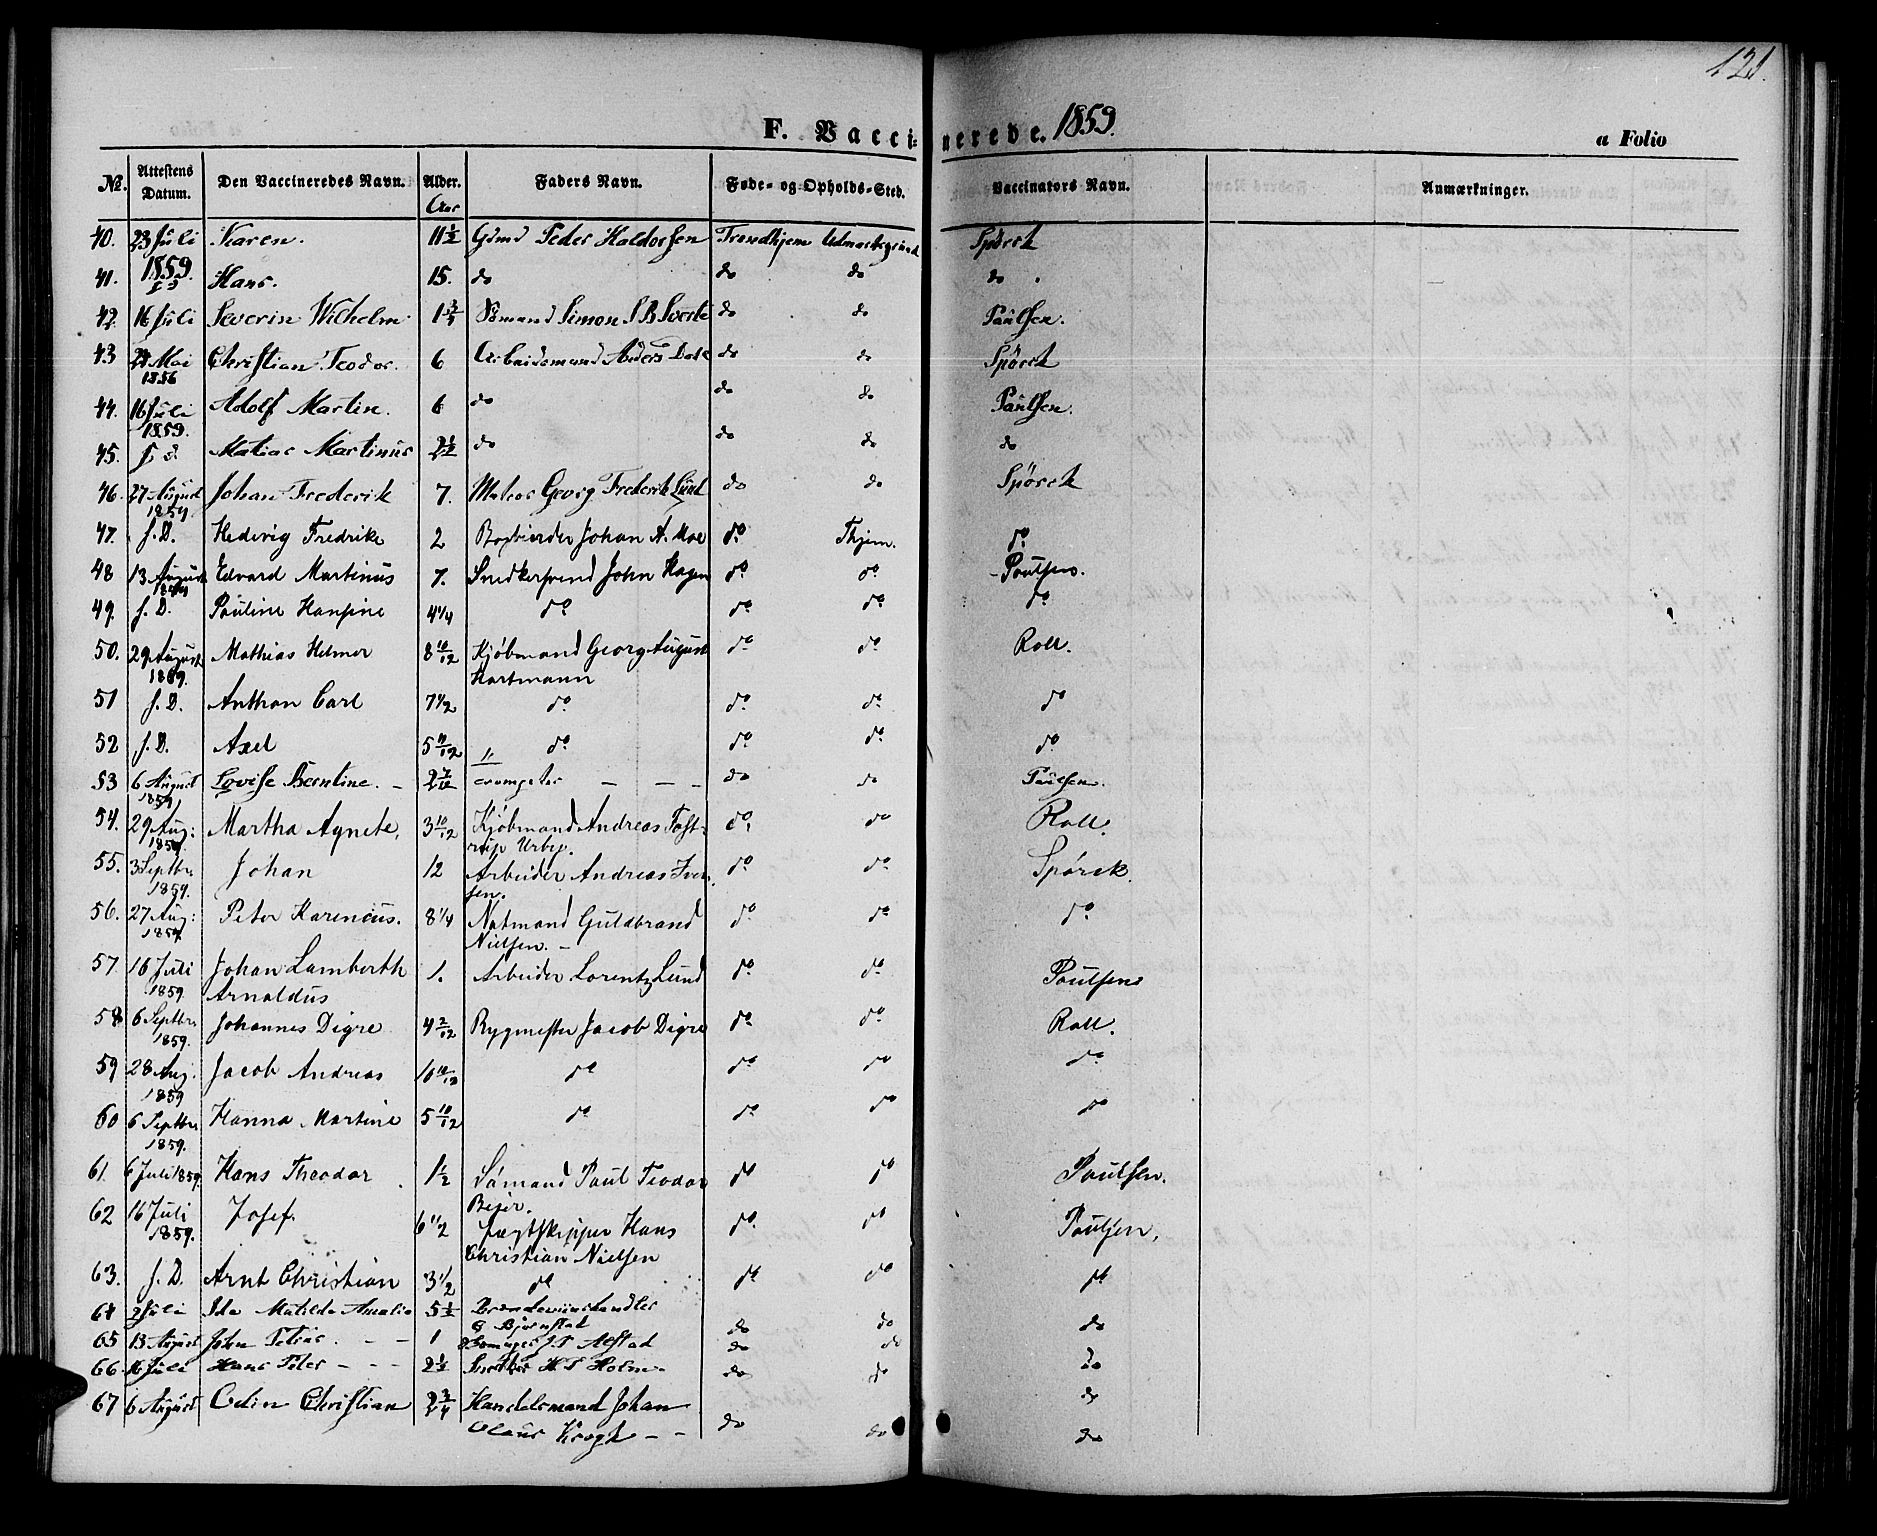 121.
F. Vaccinerede. 1859.
a Folio
No. Attestens Datum. Den Vaccineredes Navn. Alder. Faders Navn. Føde- og Opholds-Sted. Vaccinators Navn. Anmærkninger.
Aar
40. 23 Juli 1859 Karen. 11 1/2 Gdmd Peder Haldorsen Trondhjem Spörck
41. Hans. 15. do do do do
42. 16 Juli Severin Wilhelm 1 3/4 Sømand Simon S B do do Paulsen.
43 Mai 1856 Christian Teodor. 6 Arbeidsmand Anders do do Spörck
44. 16 Juli 1859. Adolf Martin. 6 do do do Paulsen.
45. J. d. Matias Martinus 2 1/2 do do do do
46. 27 August 1859. Johan Frederik 7. Georg Frederik Lund do do Spörck
47. J. D. Hedevig Fredrike 2 Johan A. Moe do Thjem. do
48 13 August 1859 Edvard Martinus 7. Snedkersvend John Hagen do do Poulsen.
49. J. D. Pauline Hansine 4 1/4 do do do do
50. 29 August 1859. Mathias Helmer 8 10/12 Kjøbmand Georg August do do Roll.
Hartmann
51 J. D. Anthon Carl 7 1/2 do do do do
52 J. D. Axel 5 10/12 do do do do
53 6 August 1859 Lovise Berntine. - 2 7/12 - - - do do Paulsen.
54. 29 Aug: 1859. Martha Agnete, 3 10/12 Kjøbmand Andreas Tost- do do Roll.
rup Urbye.
55. 3 Septbr 1859. Johan 12 Arbeider Andreas Iver- do do Spörck.
sen.
56. 27 Aug: 1859 Peter Karenius. 8 1/4 Natmand Guldbrand do do do
Nielsen. -
57. 16 Juli 1859. Johan Lamberth 1. Arbeider Lorentz Lund do do Poulsen
Arnoldus
58 6 Septbr 1859. Johannes Digre 4 2/12 Bygmester Jacob Digre do do Roll.
59 28 Aug. 1859 Jacob Andreas 10 10/12 do do do do
60 6 Septbr 1859. Hanna Martine 5 10/12 do do do do
61. 6 Juli 1859. Hans Theodor 1 1/2 Sømand Paul Teodor do do Poulsen.
Beier.
62 16 Juli 1859. Josef. 6 1/2 Jægtskipper Hans do do Poulsen.
Christian Nielsen
63. J. D. Arnt Christian 3 1/2 do do do do
64 2 Juli Ida Matilde Amalia 5 1/2 Brændeviinshandler do do do
Bjørnstad
65 13 August John Petrus. - - 1 J. P. Alstad do do
66 16 Juli Hans Peter - - - 2 1/2 H P Holm do do do
67 6 August Odin Christian 2 3/4 Handelsmand Johan do do do
Olaus Krogh - -